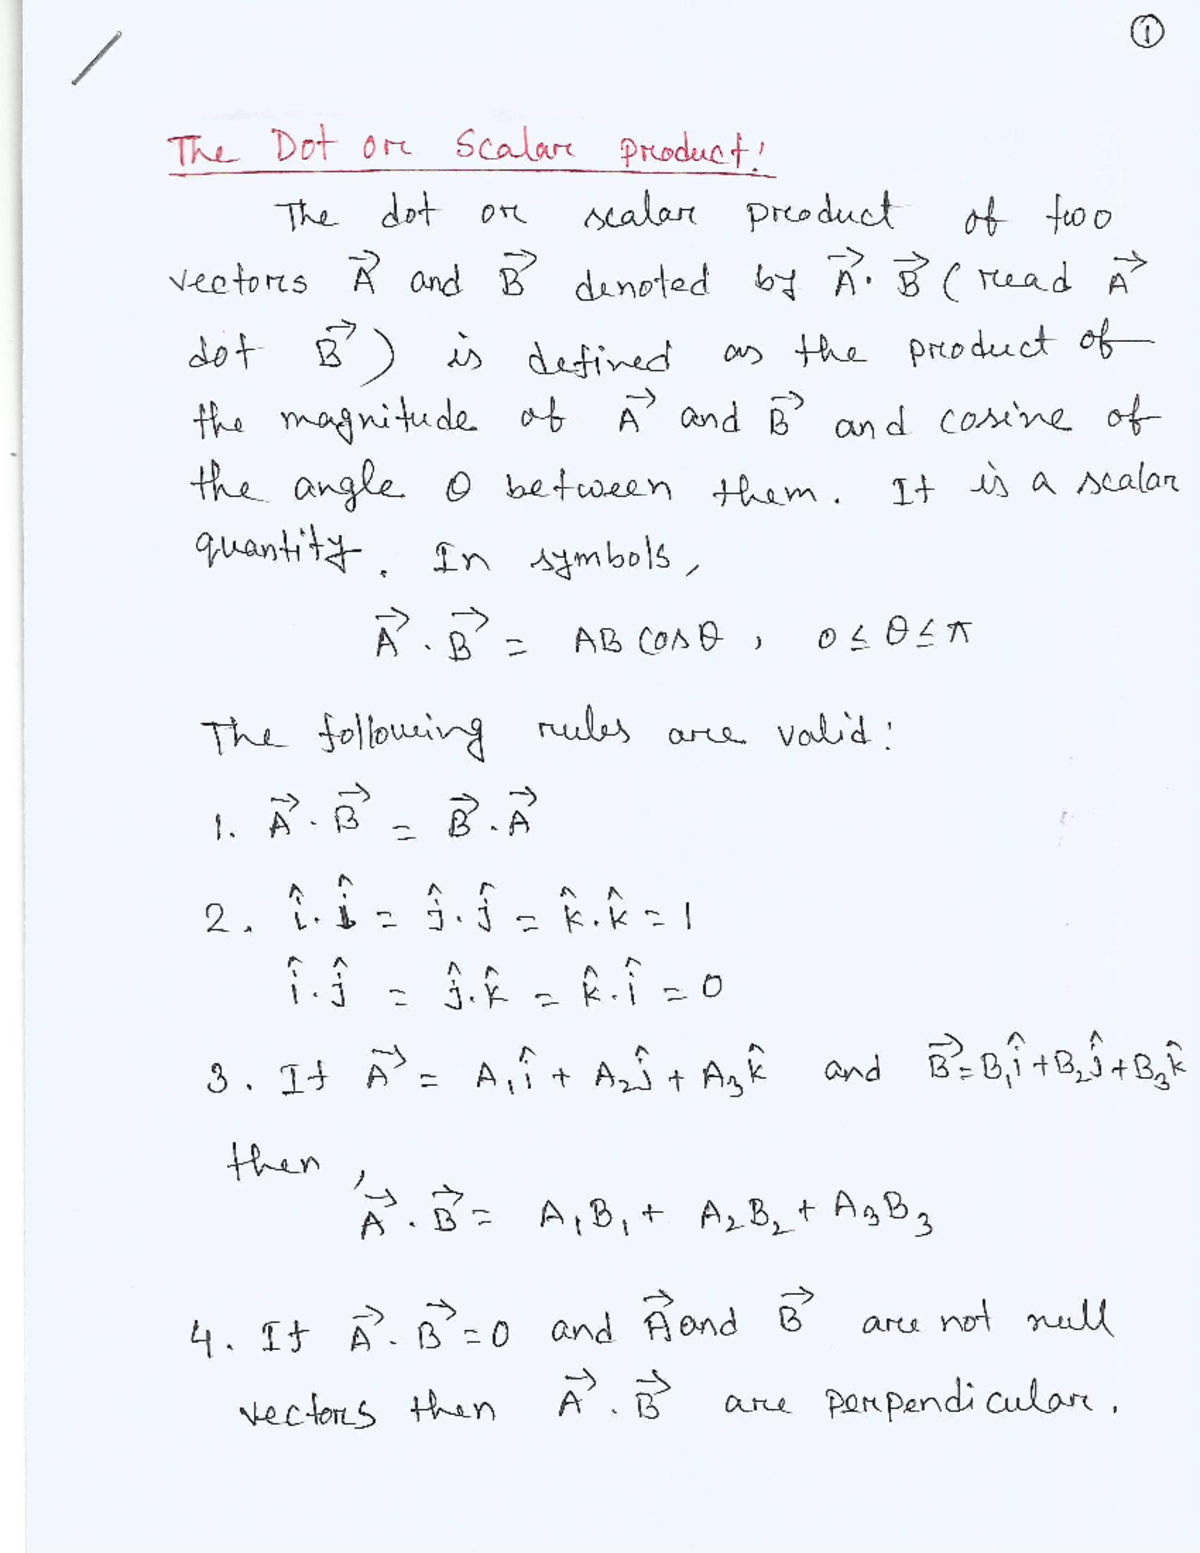 ①
The Dot or Scalar product:
The dot or scalar product of two
vectors A⃗ and B⃗ denoted by A⃗ · B⃗ (read A⃗
dot B⃗) is defined as the product of
the magnitude of A⃗ and B⃗ and cosine of
the angle θ between them. It is a scalar
quantity. In symbols,
A⃗ · B⃗ = AB cos θ, 0 ≤ θ ≤ π
The following rules are valid:
1. A⃗ · B⃗ = B⃗ · A⃗
2. î · î = ĵ · ĵ = k̂ · k̂ = 1
î · ĵ = ĵ · k̂ = k̂ · î = 0
3. If A⃗ = A₁î + A₂ĵ + A₃k̂ and B⃗ = B₁î + B₂ĵ + B₃k̂
then,
A⃗ · B⃗ = A₁B₁ + A₂B₂ + A₃B₃
4. If A⃗ · B⃗ = 0 and A⃗ and B⃗ are not null
vectors then A⃗ · B⃗ are perpendicular.